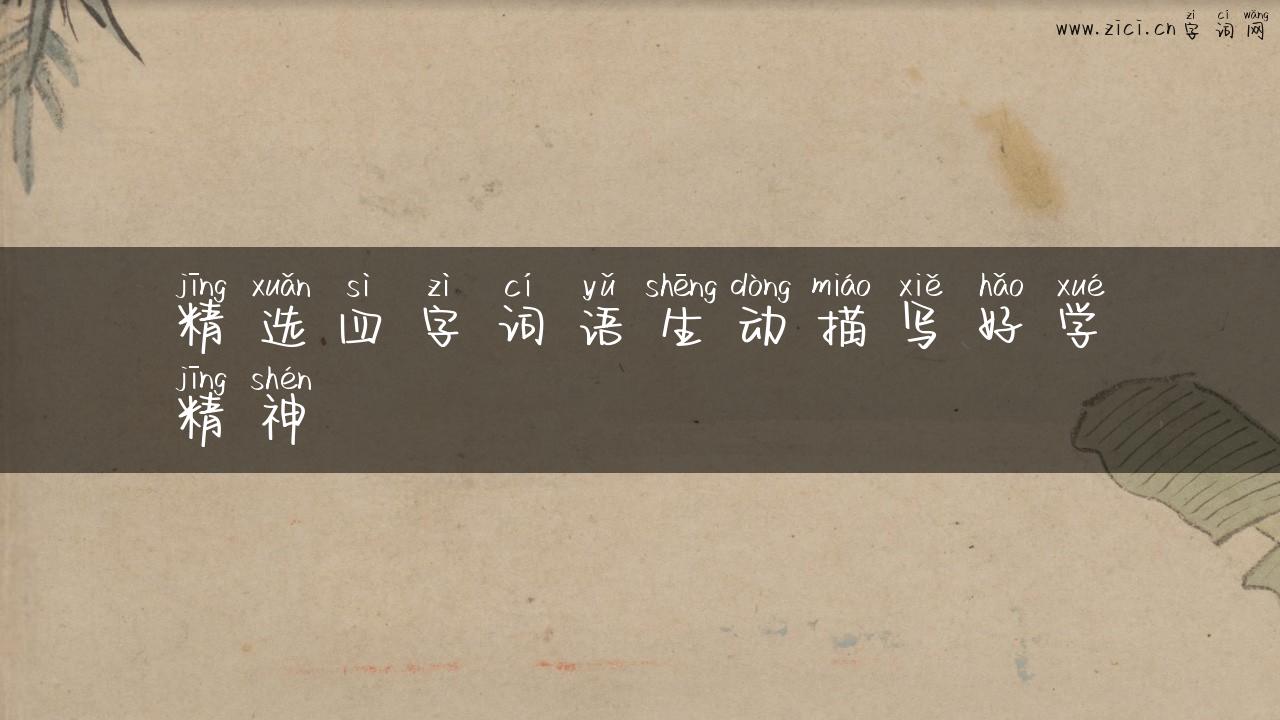 zì cí wǎng
www.zici.cn 字词网
jīng xuǎn sì zì cí yǔ shēng dòng miáo xiě hǎo xué
精选四字词语生动描写好学
jīng shén
精神